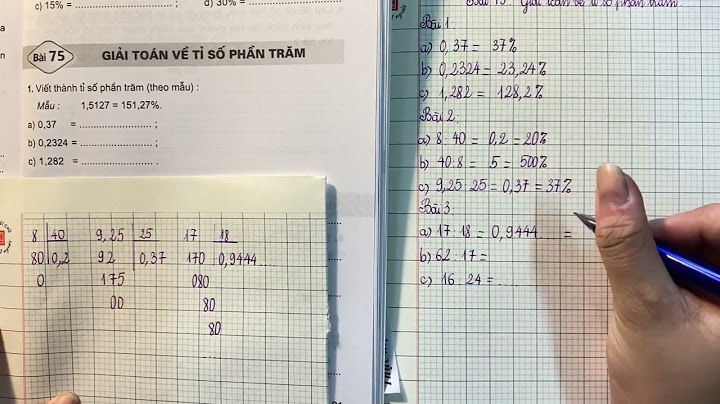 c) 15% = ............................ ;
d) 30% =
Bài 75
GIẢI TOÁN VỀ TỈ SỐ PHẦN TRĂM
1. Viết thành tỉ số phần trăm (theo mẫu) :
Mẫu : 1,5127 = 151,27%.
a) 0,37 = ...................... ;
b) 0,2324 = ...................... ;
c) 1,282 = ...................... .
8 40 9,25 25 17 18
80 0,2 92 0,37 170 0,9444...
0 175 080
00 80
80
...
Giải toán về tỉ số phần trăm
Bài 1:
a) 0,37 = 37%
b) 0,2324 = 23,24%
c) 1,282 = 128,2%
Bài 2:
a) 8 : 40 = 0,2 = 20%
b) 40 : 8 = 5 = 500%
c) 9,25 : 25 = 0,37 = 37%
Bài 3:
a) 17 : 18 = 0,9444... =
b) 62 : 17 =
c) 16 : 24 = ....